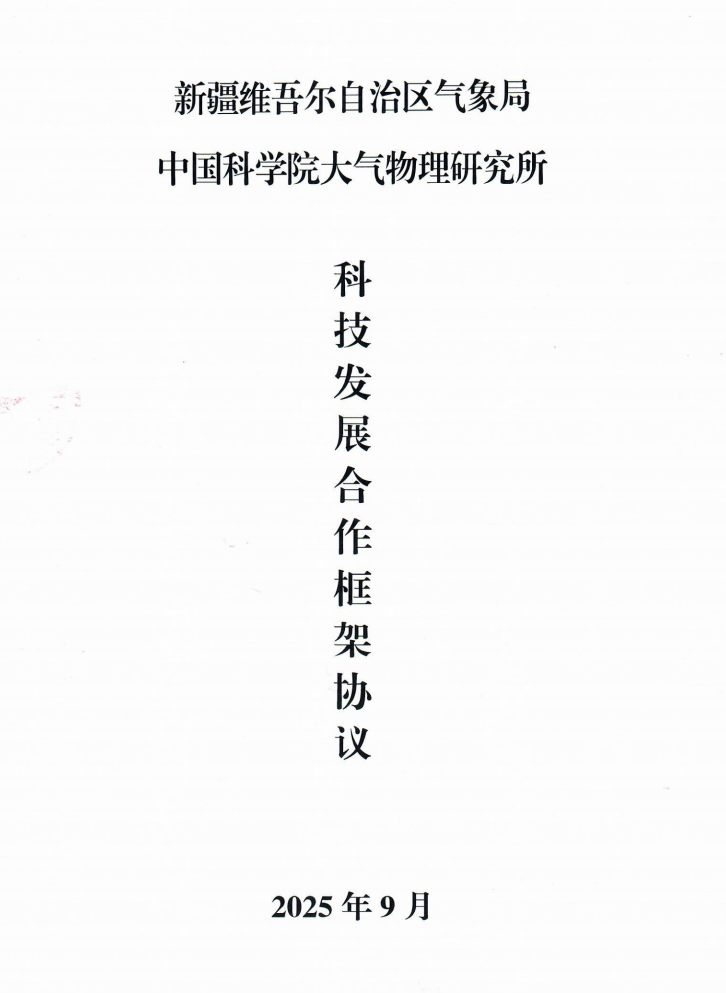 新疆维吾尔自治区气象局
中国科学院大气物理研究所
科技发展合作框架协议
2025年9月